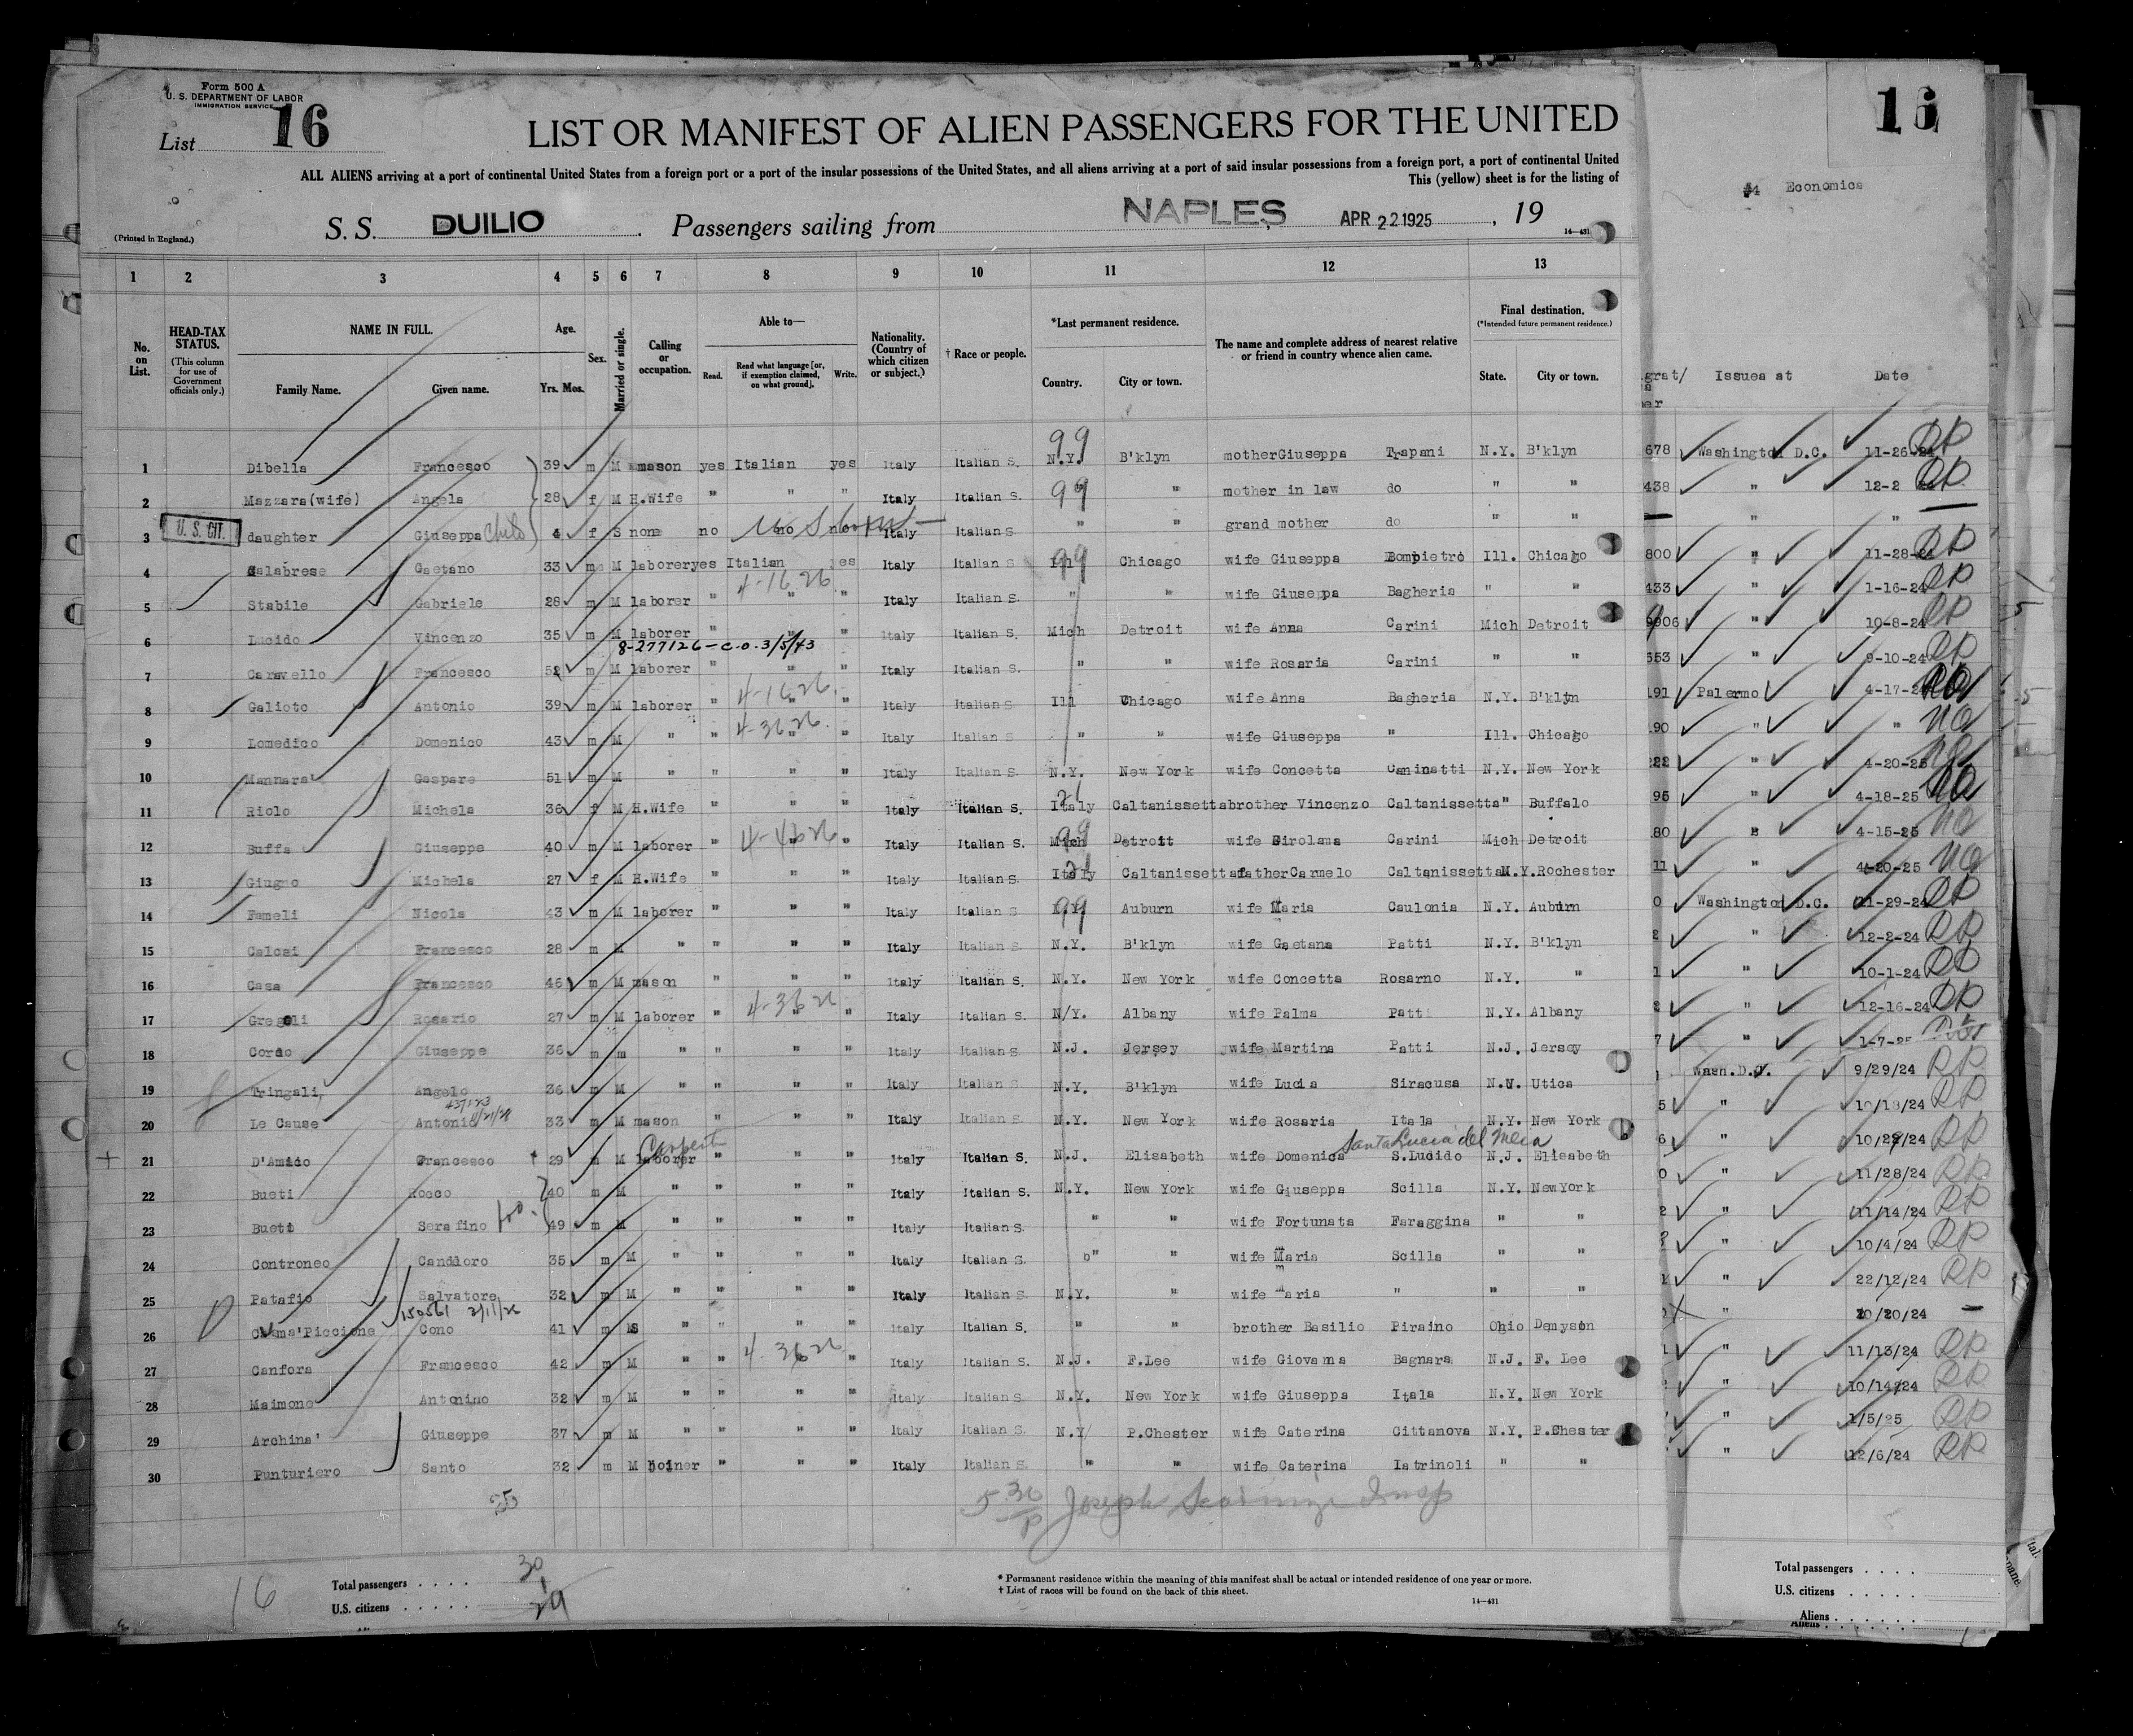 Form 500 A
U. S. DEPARTMENT OF LABOR
IMMIGRATION SERVICE
List 16
16
LIST OR MANIFEST OF ALIEN PASSENGERS FOR THE UNITED
ALL ALIENS arriving at a port of continental United States from a foreign port or a port of the insular possessions of the United States, and all aliens arriving at a port of said insular possessions from a foreign port, a port of continental United
This (yellow) sheet is for the listing of
#4 Economics
(Printed in England.)
S. S. DUILIO Passengers sailing from NAPLES APR 22 1925, 19
14—431
1 2 3 4 5 6 7 8 9 10 11 12 13
No. on List.
HEAD-TAX STATUS. (This column for use of Government officials only.)
NAME IN FULL.
Family Name. Given name.
Age. Yrs. Mos.
Sex.
Married or single.
Calling or occupation.
Able to—
Read. Read what language [or, if exemption claimed, on what ground]. Write.
Nationality. (Country of which citizen or subject.)
† Race or people.
*Last permanent residence.
Country. City or town.
The name and complete address of nearest relative or friend in country whence alien came.
Final destination. (*Intended future permanent residence.)
State. City or town.
Issues at Date
1 Dibella Francesco 39 m M mason yes Italian yes Italy Italian S. N.Y. B'klyn mother Giuseppa Trapani N.Y. B'klyn 678 Washington D.C. 11-26-24 RP
2 Mazzara(wife) Angela 28 f M H.Wife " " " Italy Italian S. " " mother in law do " " 438 " 12-2 24 RP
3 U. S. CIT. daughter Giuseppa child 4 f S none no no no Italy Italian S. " " grand mother do " " " "
4 Calabrese Gaetano 33 m M laborer yes Italian yes Italy Italian S. Ill Chicago wife Giuseppa Bompietro Ill. Chicago 800 " 11-28-24 RP
5 Stabile Gabriele 28 m M laborer " 4-16 26 " " Italy Italian S. " " wife Giuseppa Bagheria " " 433 " 1-16-24 RP
6 Lucido Vincenzo 35 m M laborer " " " Italy Italian S. Mich Detroit wife Anna Carini Mich Detroit 9906 " 10-8-24 RP
8-277126-C.O.3/5/43
7 Caravello Francesco 52 m M laborer " " " Italy Italian S. " " wife Rosaria Carini " " 553 " 9-10-24 RP
8 Galioto Antonio 39 m M laborer " 4-16 26. " " Italy Italian S Ill Chicago wife Anna Bagheria N.Y. B'klyn 191 Palermo 4-17-2
9 Lomedico Domenico 43 m M " " 4-36 26. " Italy Italian S " " wife Giuseppa " Ill. Chicago 190 " "
10 Mannara' Gaspare 51 m M " " " " Italy Italian S. N.Y. New York wife Concetta Caninatti N.Y. New York 222 " 4-20-25
11 Riolo Michela 36 f M H.Wife " " " Italy Italian S. Italy Caltanissetta brother Vincenzo Caltanissetta " Buffalo 95 " 4-18-25
12 Buffa Giuseppe 40 m M laborer " " " Italy Italian S. Mich Detroit wife Girolama Carini Mich Detroit 80 " 4-15-25
13 Giugno Michela 27 f M H.Wife " " " Italy Italian S. Italy Caltanissetta father Carmelo Caltanissetta N.Y. Rochester 11 " 4-20-25
14 Fameli Nicola 43 m M laborer " " " Italy Italian S N.Y. Auburn wife Maria Caulonia N.Y. Auburn 0 Washington D.C. 11-29-24 RP
15 Calcai Francesco 28 m M " " " " Italy Italian S. N.Y. B'klyn wife Gaetana Patti N.Y. B'klyn 2 " 12-2-24 RP
16 Casa Francesco 46 m M mason " " " Italy Italian S. N.Y. New York wife Concetta Rosarno N.Y. " 1 " 10-1-24 RP
17 Gregoli Rosario 27 m M laborer " 4-36 26 " " Italy Italian S. N/Y. Albany wife Palma Patti N.Y. Albany " 12-16-24 RP
18 Cordo Giuseppe 36 m m " " " " Italy Italian S N.J. Jersey wife Martina Patti N.J. Jersey 7 " 1-7-25
19 Tringali, Angelo 36 m M " " " " Italy Italian S N.Y. B'klyn wife Lucia Siracusa N.Y. Utica Wash.D.C. 9/29/24 RP
20 Le Cause Antonio 33 m M mason " " " Italy Italian S N.Y. New York wife Rosaria Itala N.Y. New York 5 " 10/18/24 RP
Carpent Santa Lucia del Mela
21 D'Amico Francesco 29 m M laborer " " " Italy Italian S. N.J. Elisabeth wife Domenica S.Lucido N.J. Elisabeth 6 " 10/29/24 RP
22 Bueti Rocco 40 m M " " " " Italy Italian S. N.Y. New York wife Giuseppa Scilla N.Y. NewYork 0 " 11/28/24 RP
23 Bueti Serafino bro. 49 m M " " " " Italy Italian S. " " wife Fortunata Faraggina " " 2 " 11/14/24 RP
24 Controneo Candioro 35 m M " " " " Italy Italian S. " " wife Maria Scilla " " " 10/4/24 RP
25 Patafio Salvatore 32 m M " " " " Italy Italian S N.Y. " wife Maria " " " " 22/12/24 RP
150561 2/11/26
26 Chama'Piccione Cono 41 m S " " " " Italy Italian S. " " brother Basilio Piraino Ohio Denyson " 10/20/24 —
27 Canfora Francesco 42 m M " " 4-36 26 " Italy Italian S. N.J. F.Lee wife Giovanna Bagnara N.J. F. Lee " 11/13/24 RP
28 Maimone Antonino 32 m M " " " " Italy Italian S N.Y. New York wife Giuseppa Itala N.Y. New York " 10/14/24 RP
29 Archina' Giuseppe 37 m M " " " " Italy Italian S. N.Y/ P.Chester wife Caterina Cittanova N.Y. P.Chester " 1/5/25 RP
30 Punturiero Santo 32 m M joiner " " " Italy Italian S. " " wife Caterina Iatrinoli " " " 12/6/24 RP
25
5 30/P Joseph Insp
16
Total passengers . . . . 30
U.S. citizens . . . . . 1
29
* Permanent residence within the meaning of this manifest shall be actual or intended residence of one year or more.
† List of races will be found on the back of this sheet.
14—431
Total passengers . . . .
U.S. citizens . . . . .
Aliens . . . . . .